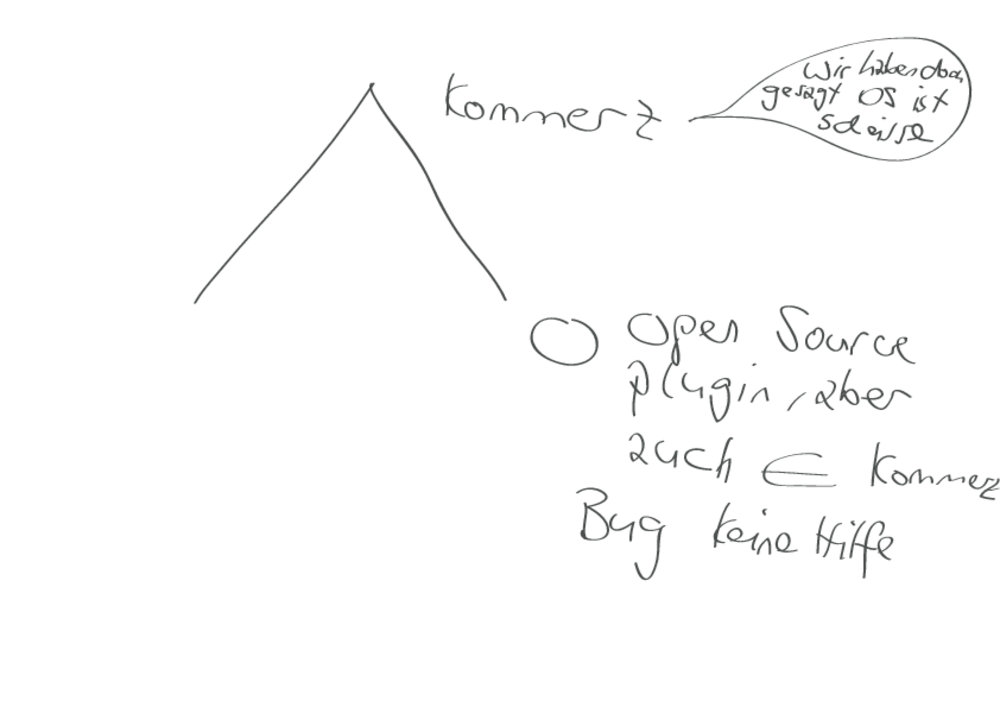 Kommerz
Wir haben doch
gesagt OS ist
scheisse
Open Source
plugin, aber
auch ∈ Kommerz
Bug keine Hilfe